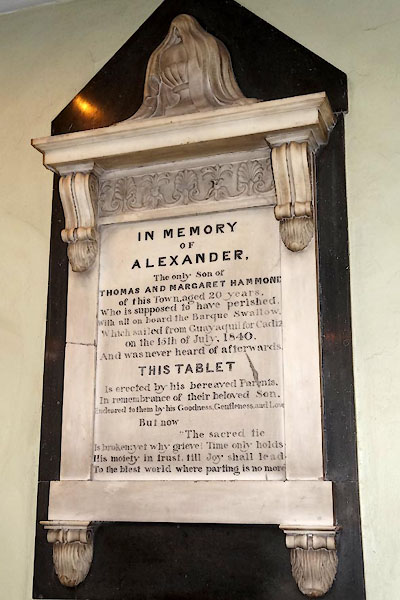 IN MEMORY
OF
ALEXANDER,
The only Son of
THOMAS AND MARGARET HAMMOND
of this Town, aged 20 years,
Who is supposed to have perished,
With all on board the Barque Swallow,
Which sailed from Guayaquil for Cadiz
on the 15th of July, 1840.
And was never heard of afterwards.
THIS TABLET
is erected by his bereaved Parents,
In remembrance of their beloved Son,
Endeared to them by his Goodness, Gentleness, and Love
But now
"The sacred tie
Is broken: yet why grieve: Time only holds
His moiety in trust, till Joy shall lead
To the blest world where parting is no more